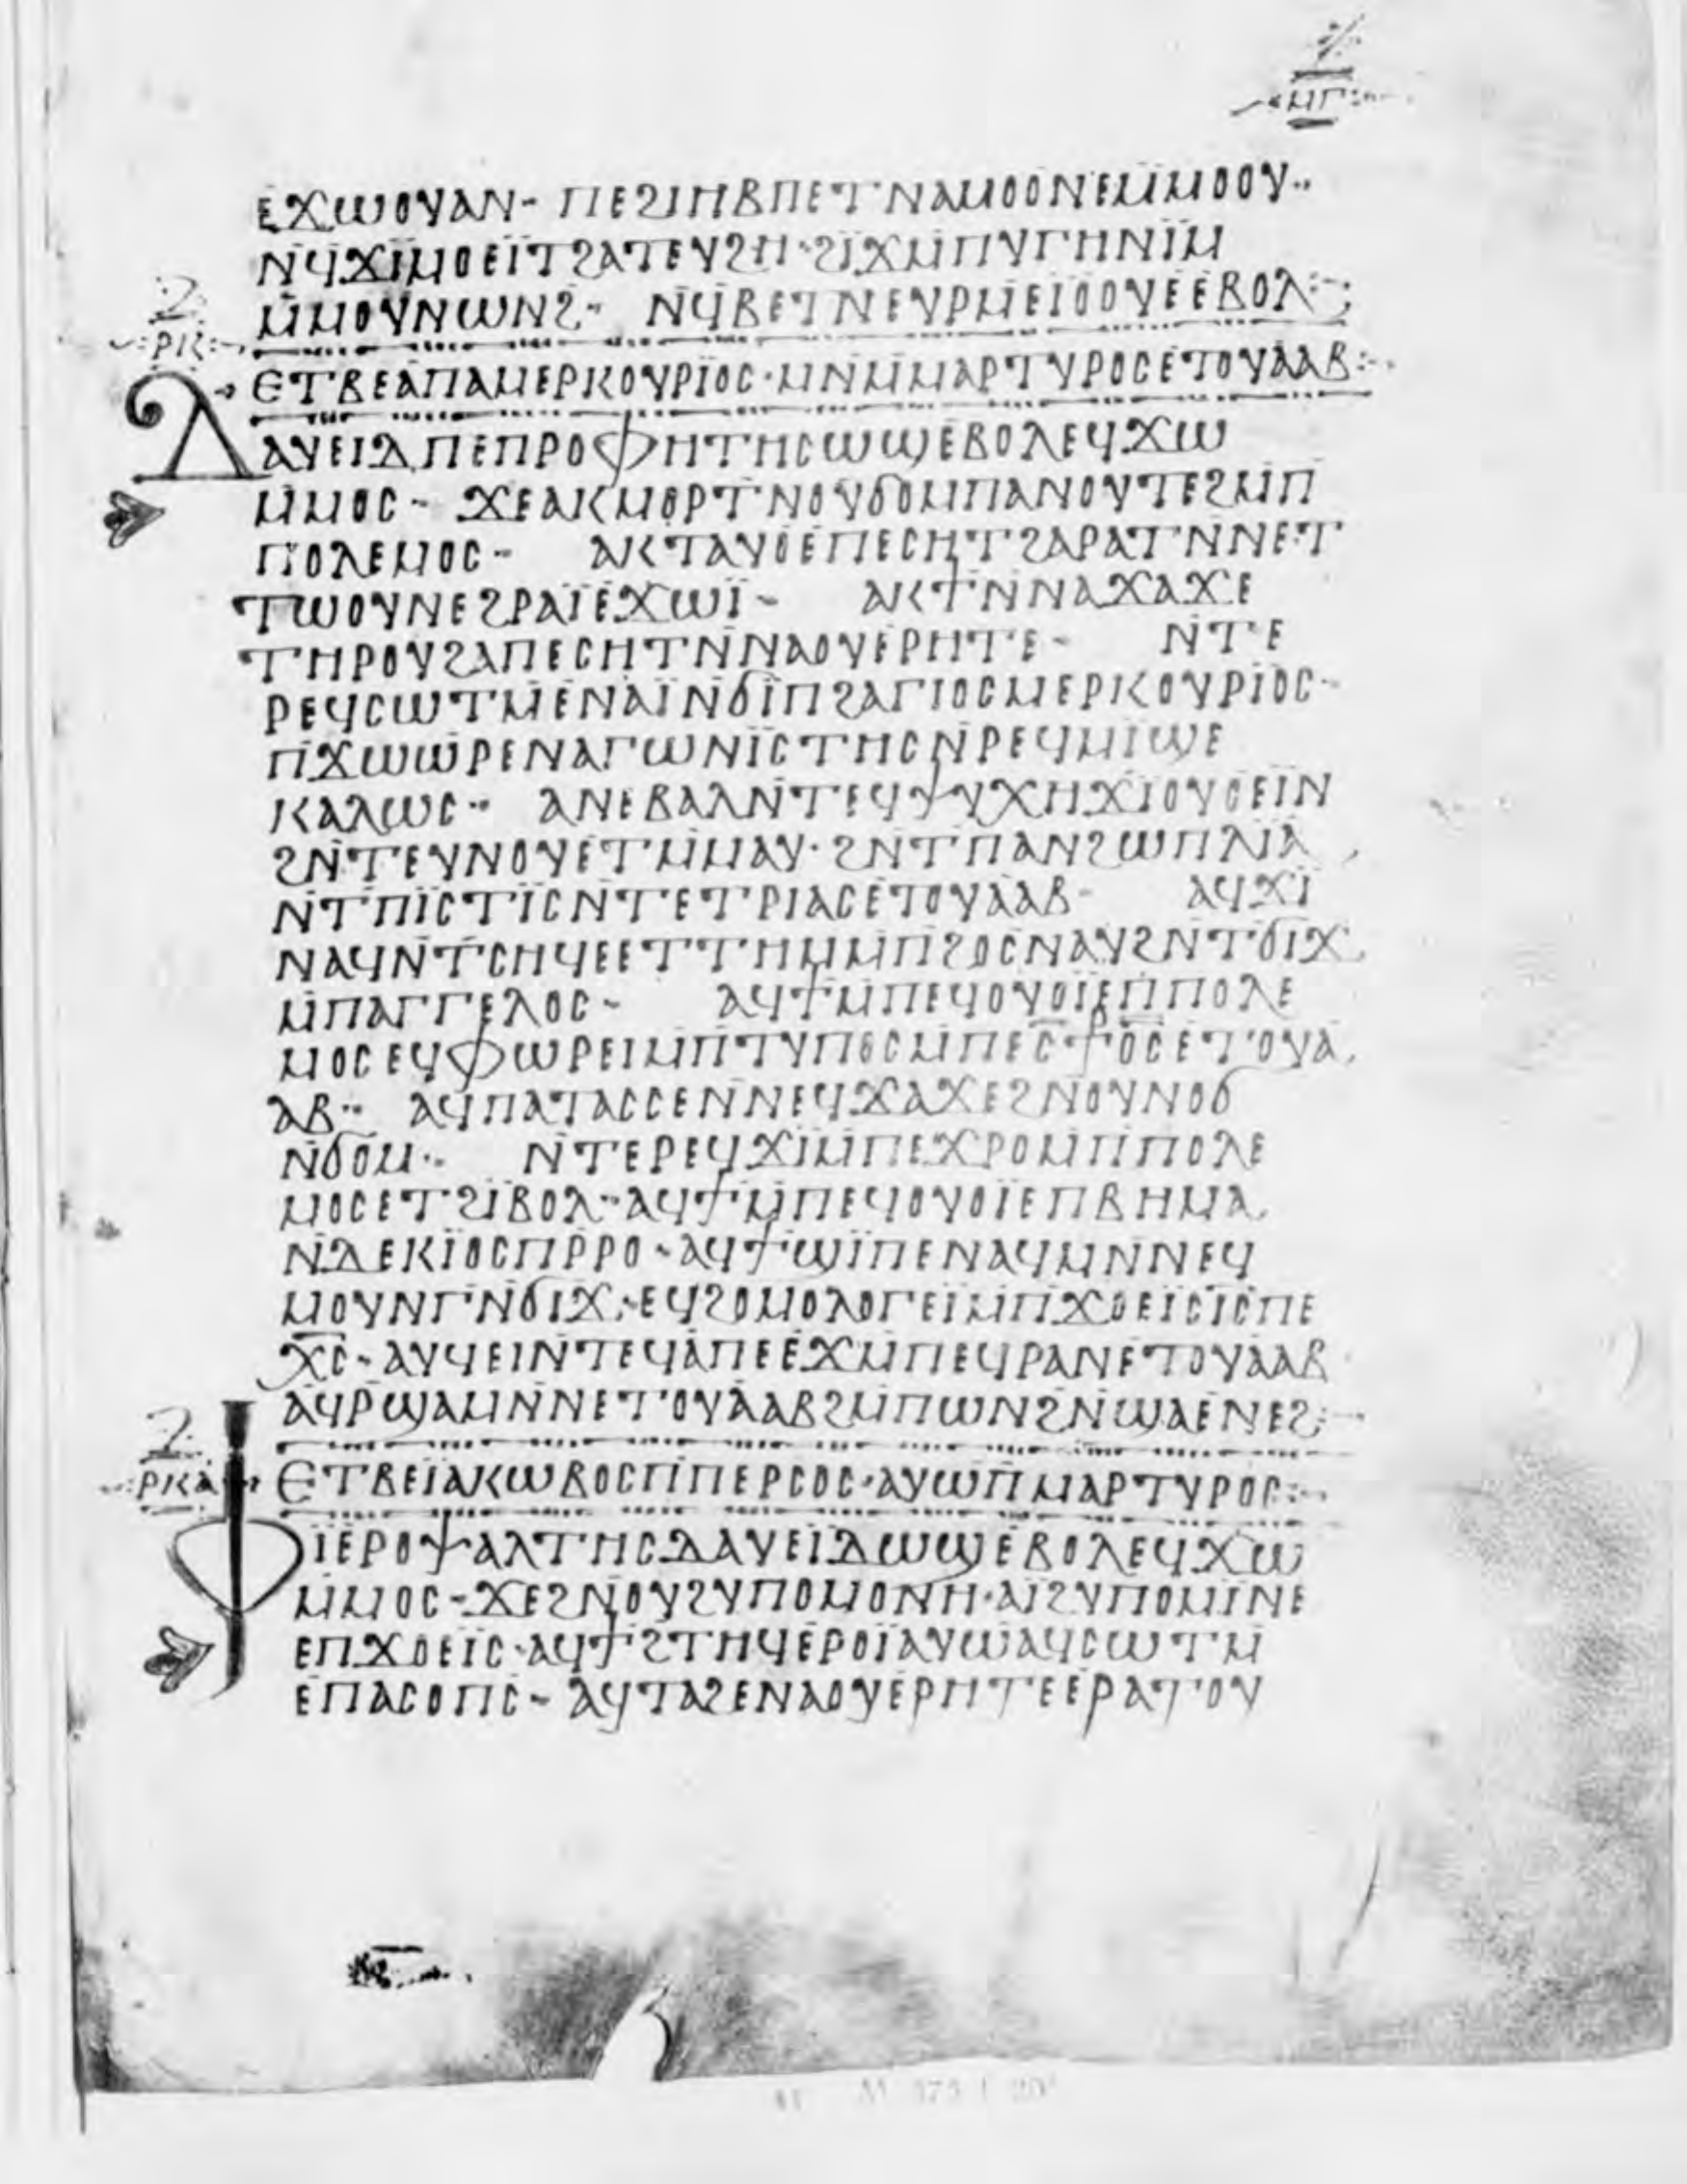 ⲙⲅ
ⲉϫⲱⲟⲩⲁⲛ- ⲡⲉϩⲓⲏⲃⲡⲉⲧⲛⲁⲙⲟⲟⲛⲉⲙ̄ⲙⲟⲟⲩ··
ⲛϥϫⲓⲙⲟⲉⲓⲧϩⲁⲧⲉⲩϩⲏ·ϩⲓϫⲙⲡⲩⲅⲏⲛⲓⲙ
ⲙ̄ⲙⲟⲩⲛⲱⲛϩ- ⲛϥⲃⲉⲧⲛⲉⲩⲣⲙⲉⲓⲟⲟⲩⲉⲉⲃⲟⲗ:
ⲣⲕ
ⲉⲧⲃⲉⲁⲡⲁⲙⲉⲣⲕⲟⲩⲣⲓⲟⲥ·ⲙⲛⲙ̄ⲙⲁⲣⲧⲩⲣⲟⲥⲉⲧⲟⲩⲁⲁⲃ:
ⲇⲁⲩⲉⲓⲇⲡⲉⲡⲣⲟⲫⲏⲧⲏⲥⲱϣⲉⲃⲟⲗⲉϥϫⲱ
ⲙ̄ⲙⲟⲥ- ϫⲉⲁⲕⲙⲟⲣⲧⲛⲟⲩϭⲟⲙⲡⲁⲛⲟⲩⲧⲉϩⲙⲡ
ⲡⲟⲗⲉⲙⲟⲥ- ⲁⲕⲧⲁⲩⲟⲉⲡⲉⲥⲏⲧϩⲁⲣⲁⲧⲛⲛⲉⲧ
ⲧⲱⲟⲩⲛⲉϩⲣⲁⲓⲉϫⲱⲓ- ⲁⲕϯⲛⲛⲁϫⲁϫⲉ
ⲧⲏⲣⲟⲩϩⲁⲡⲉⲥⲏⲧⲛⲛⲁⲟⲩⲉⲣⲏⲧⲉ- ⲛⲧⲉ
ⲣⲉϥⲥⲱⲧⲙⲉⲛⲁⲓⲛϭⲓⲡϩⲁⲅⲓⲟⲥⲙⲉⲣⲕⲟⲩⲣⲓⲟⲥ-
ⲡϫⲱⲱⲣⲉⲛⲁⲅⲱⲛⲓⲥⲧⲏⲥⲛⲣⲉϥⲙⲓϣⲉ
ⲕⲁⲗⲱⲥ·· ⲁⲛⲉⲃⲁⲗⲛⲧⲉϥⲯⲩⲭⲏϫⲓⲟⲩⲟⲉⲓⲛ
ϩⲛⲧⲉⲩⲛⲟⲩⲉⲧⲙ̄ⲙⲁⲩ·ϩⲛⲧⲡⲁⲛϩⲱⲡⲗⲓⲁ
ⲛⲧⲡⲓⲥⲧⲓⲥⲛⲧⲉⲧⲣⲓⲁⲥⲉⲧⲟⲩⲁⲁⲃ- ⲁϥϫⲓ
ⲛⲁϥⲛⲧⲥⲏϥⲉⲉⲧⲧⲏⲙⲙⲡϩⲟⲥⲛⲁⲩϩⲛⲧϭⲓϫ
ⲙⲡⲁⲅⲅⲉⲗⲟⲥ- ⲁϥϯⲙⲡⲉϥⲟⲩⲟⲓⲉⲡⲡⲟⲗⲉ
ⲙⲟⲥⲉϥⲫⲱⲣⲉⲓⲙⲡⲧⲩⲡⲟⲥⲙⲡⲉⲥ̄ⳁⲟ̄ⲥⲉⲧⲟⲩⲁ
ⲁⲃ·· ⲁϥⲡⲁⲧⲁⲥⲥⲉⲛⲛⲉϥϫⲁϫⲉϩⲛⲟⲩⲛⲟϭ
ⲛϭⲟⲙ·· ⲛⲧⲉⲣⲉϥϫⲓⲙⲡⲉϫⲣⲟⲙⲡⲡⲟⲗⲉ
ⲙⲟⲥⲉⲧϩⲓⲃⲟⲗ··ⲁϥϯⲙⲡⲉϥⲟⲩⲟⲓⲉⲡⲃⲏⲙⲁ
ⲛⲇⲉⲕⲓⲟⲥⲡⲣⲣⲟ·ⲁϥϯϣⲓⲡⲉⲛⲁϥⲙⲛⲛⲉϥ
ⲙⲟⲩⲛⲅⲛϭⲓϫ·ⲉϥϩⲟⲙⲟⲗⲟⲅⲉⲓⲙⲡϫⲟⲉⲓⲥⲓ̄ⲥ̄ⲡⲉ
ⲭ̄ⲥ̄-ⲁⲩϥⲉⲓⲛⲧⲉϥⲁⲡⲉⲉϫⲙⲡⲉϥⲣⲁⲛⲉⲧⲟⲩⲁⲁⲃ
ⲁϥⲣϣⲁⲙⲛⲛⲉⲧⲟⲩⲁⲁⲃϩⲙⲡⲱⲛϩⲛϣⲁⲉⲛⲉϩ:
ⲣⲕⲁ
ⲉⲧⲃⲉⲓⲁⲕⲱⲃⲟⲥⲡⲡⲉⲣⲥⲟⲥ·ⲁⲩⲱⲡⲙⲁⲣⲧⲩⲣⲟⲥ:
ⲫⲓⲉⲣⲟⲯⲁⲗⲧⲏⲥⲇⲁⲩⲉⲓⲇⲱϣⲉⲃⲟⲗⲉϥϫⲱ
ⲙ̄ⲙⲟⲥ-ϫⲉϩⲛⲟⲩϩⲩⲡⲟⲙⲟⲛⲏ·ⲁⲓϩⲩⲡⲟⲙⲓⲛⲉ
ⲉⲡϫⲟⲉⲓⲥ·ⲁϥϯϩⲧⲏϥⲉⲣⲟⲓⲁⲩⲱⲁϥⲥⲱⲧⲙ
ⲉⲡⲁⲥⲟⲡⲥ- ⲁϥⲧⲁϩⲉⲛⲁⲟⲩⲉⲣⲏⲧⲉⲉⲣⲁⲧⲟⲩ